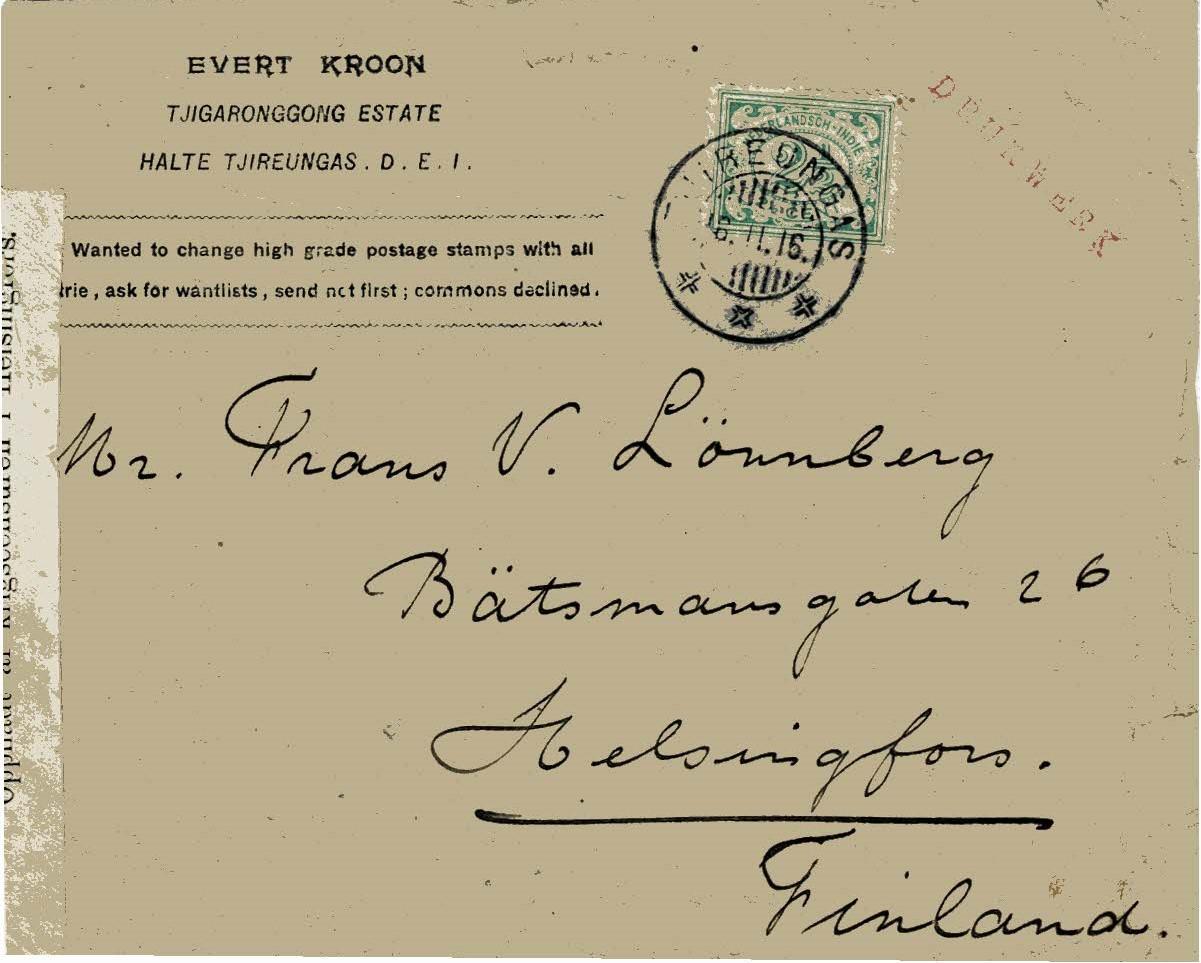 EVERT KROON
TJIGARONGGONG ESTATE
HALTE TJIREUNGAS. D. E. I.
Wanted to change high grade postage stamps with all
trie, ask for wantlists, send nct first; commons declined.
NEDERLANDSCH-INDIË
2½
TJIREUNGAS
16.11.16.
DRUKWERK
Mr. Frans V. Lönnberg
Bätsmansgatan 26
Helsingfors.
Finland.
Öppnadt af Krigscensuren i Helsingfors.